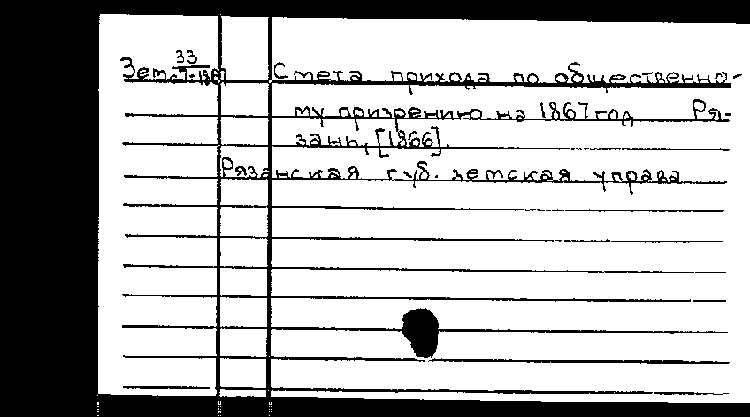 33
Зем Смета прихода по общественно-
му призрению на 1867 год Ря-
зань, [1866].
Рязанская губ. земская управа